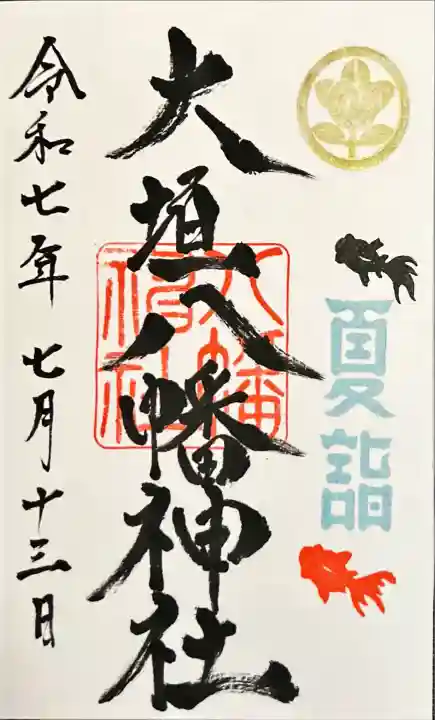 夏詣
大垣八幡神社
八幡
神社
令和七年七月十三日